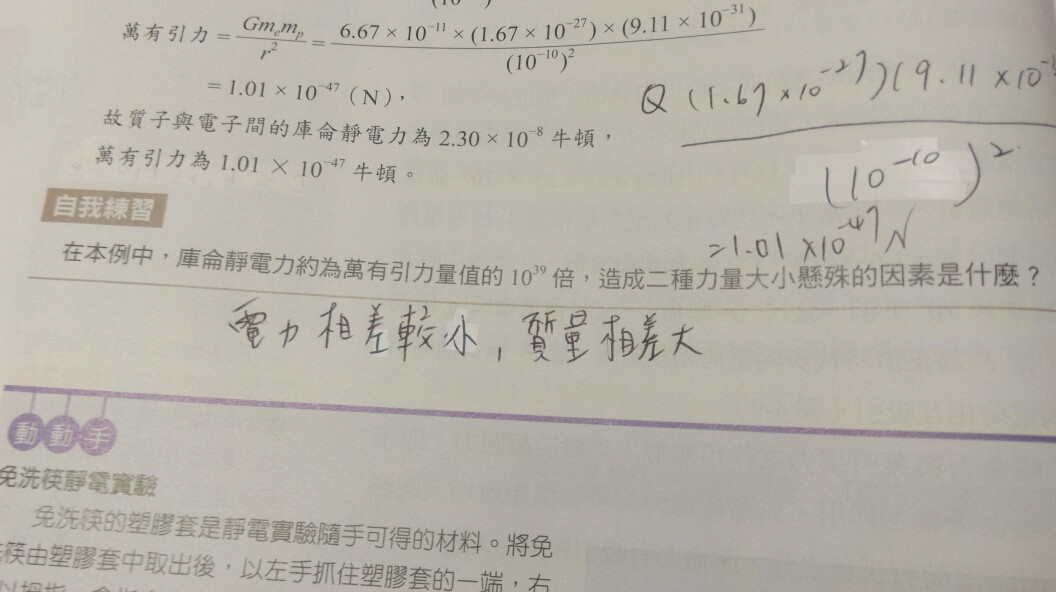 萬有引力 = Gmₑmₚ / r² = 6.67 × 10⁻¹¹ × (1.67 × 10⁻²⁷) × (9.11 × 10⁻³¹) / (10⁻¹⁰)²
= 1.01 × 10⁻⁴⁷ (N),
故質子與電子間的庫侖靜電力為 2.30 × 10⁻⁸ 牛頓,
萬有引力為 1.01 × 10⁻⁴⁷ 牛頓。
Q (1.67 × 10⁻²⁷)(9.11 × 10
(10⁻¹⁰)²
= 1.01 × 10⁻⁴⁷ N
自我練習
在本例中,庫侖靜電力約為萬有引力量值的 10³⁹ 倍,造成二種力量大小懸殊的因素是什麼?
電力相差較小,質量相差大
動動手
免洗筷靜電實驗
免洗筷的塑膠套是靜電實驗隨手可得的材料。將免
筷由塑膠套中取出後,以左手抓住塑膠套的一端,右